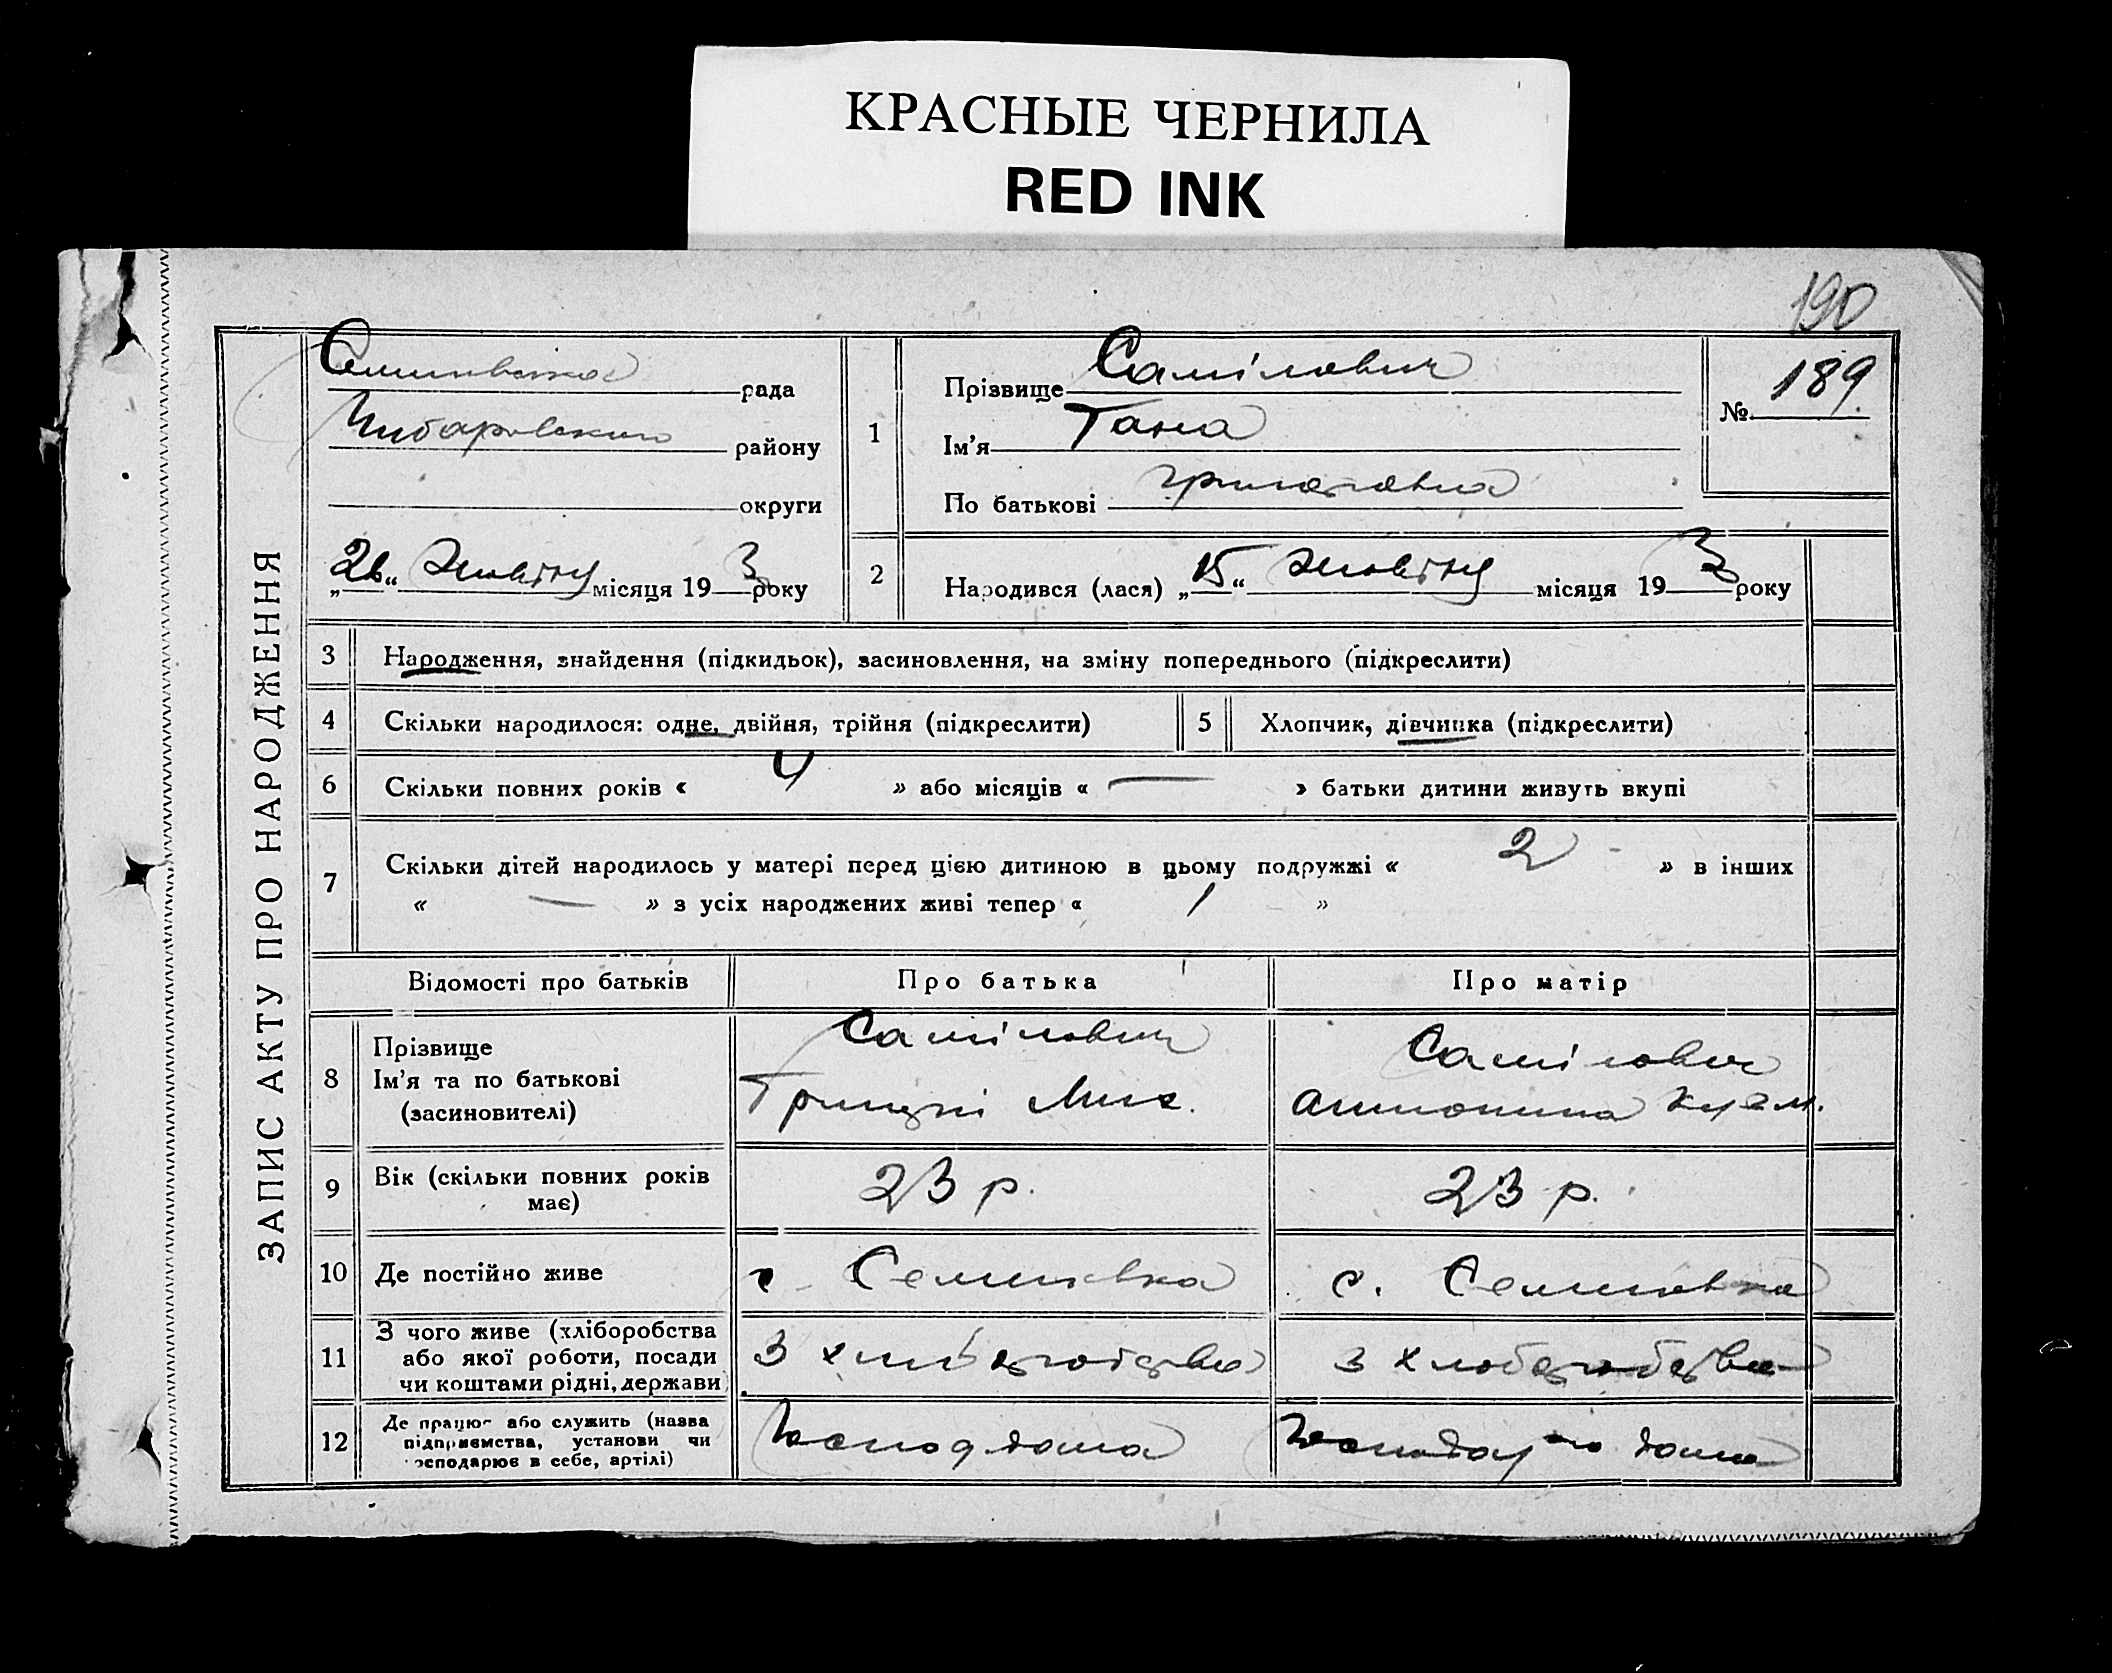 КРАСНЫЕ ЧЕРНИЛА
RED INK
190
ЗАПИС АКТУ ПРО НАРОДЖЕННЯ
рада
району
округи
„26“ Жовтня місяця 193 року
1
Прізвище Самілович
Ім’я Таня
По батькові
№ 189.
2
Народився (лася) „15“ Жовтня місяця 193 року
3 Народження, знайдення (підкидьок), засиновлення, на зміну попереднього (підкреслити)
4 Скільки народилося: одне, двійня, трійня (підкреслити)
5 Хлопчик, дівчинка (підкреслити)
6 Скільки повних років « 4 » або місяців « — » батьки дитини живуть вкупі
7 Скільки дітей народилось у матері перед цією дитиною в цьому подружжі « 2 » в інших
« — » з усіх народжених живі тепер « 1 »
Відомості про батьків
Про батька
Про матір
8
Прізвище
Ім’я та по батькові
(засиновителі)
Самілович
Мих.
Самілович
Антонина Кузм.
9
Вік (скільки повних років
має)
23 р.
23 р.
10 Де постійно живе
с. Семиківка
с. Семиківка
11
З чого живе (хліборобства
або якої роботи, посади
чи коштами рідні, держави
З
з
12
Де працює або служить (назва
підприємства, установи чи
господарює в себе, артілі)
дома
дома